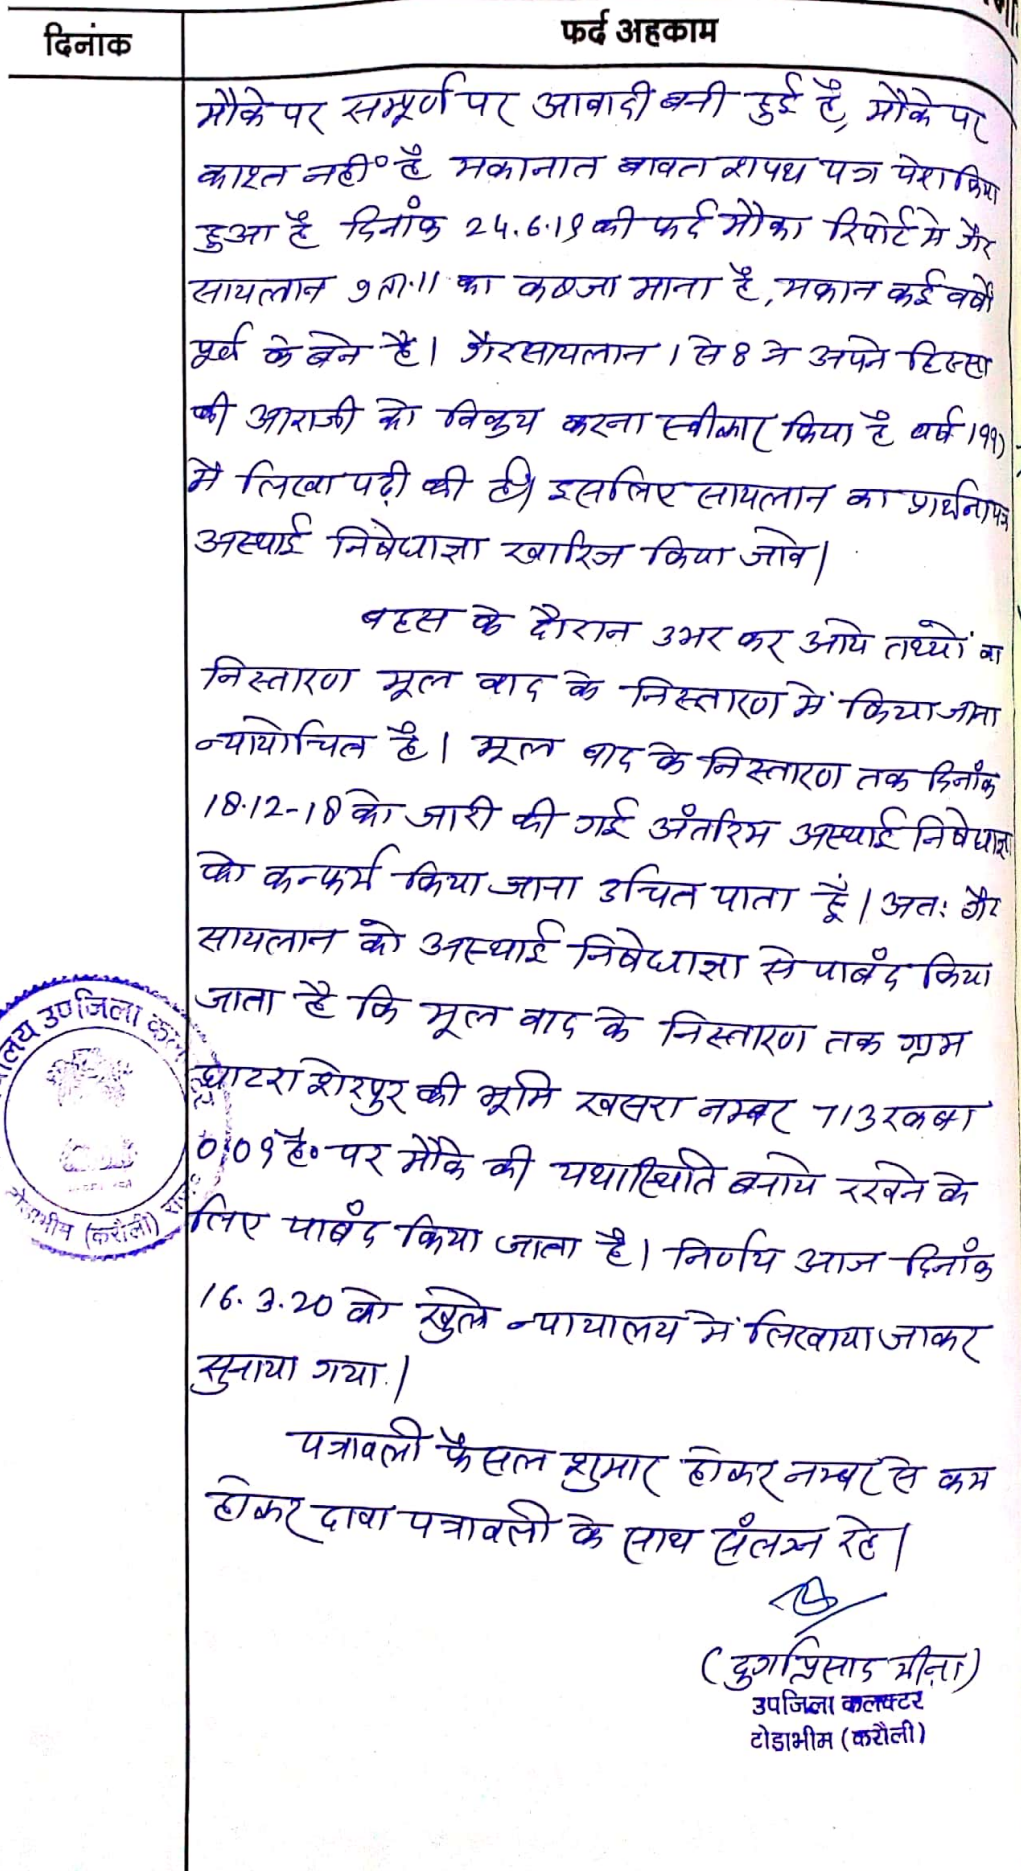 दिनांक
फर्द अहकाम
मौके पर सम्पूर्ण पर आबादी बनी हुई है, मौके पर
काश्त नहीं है मकानात बावत शपथ पत्र पेश किया
हुआ है दिनांक 24.6.19 की फर्द मौका रिपोर्ट मे गैर
सायलान 9 ता.11 का कब्जा माना है, मकान कई वर्षो
पूर्व के बने है। गैरसायलान 1 से 8 ने अपने हिस्सा
की आराजी को विक्रय करना स्वीकार किया है वर्ष
में लिखा पढ़ी की है। इसलिए सायलान का प्रार्थनापत्र
अस्थाई निषेधाज्ञा खारिज किया जावे।
बहस के दौरान उभर कर आये तथ्यों का
निस्तारण मूल वाद के निस्तारण में किया जाना
न्यायोचित है। मूल वाद के निस्तारण तक दिनांक
18.12-18 को जारी की गई अंतरिम अस्थाई निषेधाज्ञा
को कन्फर्म किया जाना उचित पाता हूं। अतः गैर
सायलान को अस्थाई निषेधाज्ञा से पाबंद किया
जाता है कि मूल वाद के निस्तारण तक ग्राम
घाटरा शेरपुर की भूमि खसरा नम्बर 713 रकबा
0.09 है० पर मौके की यथास्थिति बनाये रखने के
लिए पाबंद किया जाता है। निर्णय आज दिनांक
16.3.20 को खुले न्यायालय में लिखवाया जाकर
सुनाया गया।
पत्रावली फैसल शुमार होकर नम्बर से कम
होकर दावा पत्रावली के साथ संलग्न रहे।
(दुर्गाप्रसाद मीना)
उपजिला कलक्टर
टोडाभीम (करौली)
उपजिला
टोडाभीम (करौली)